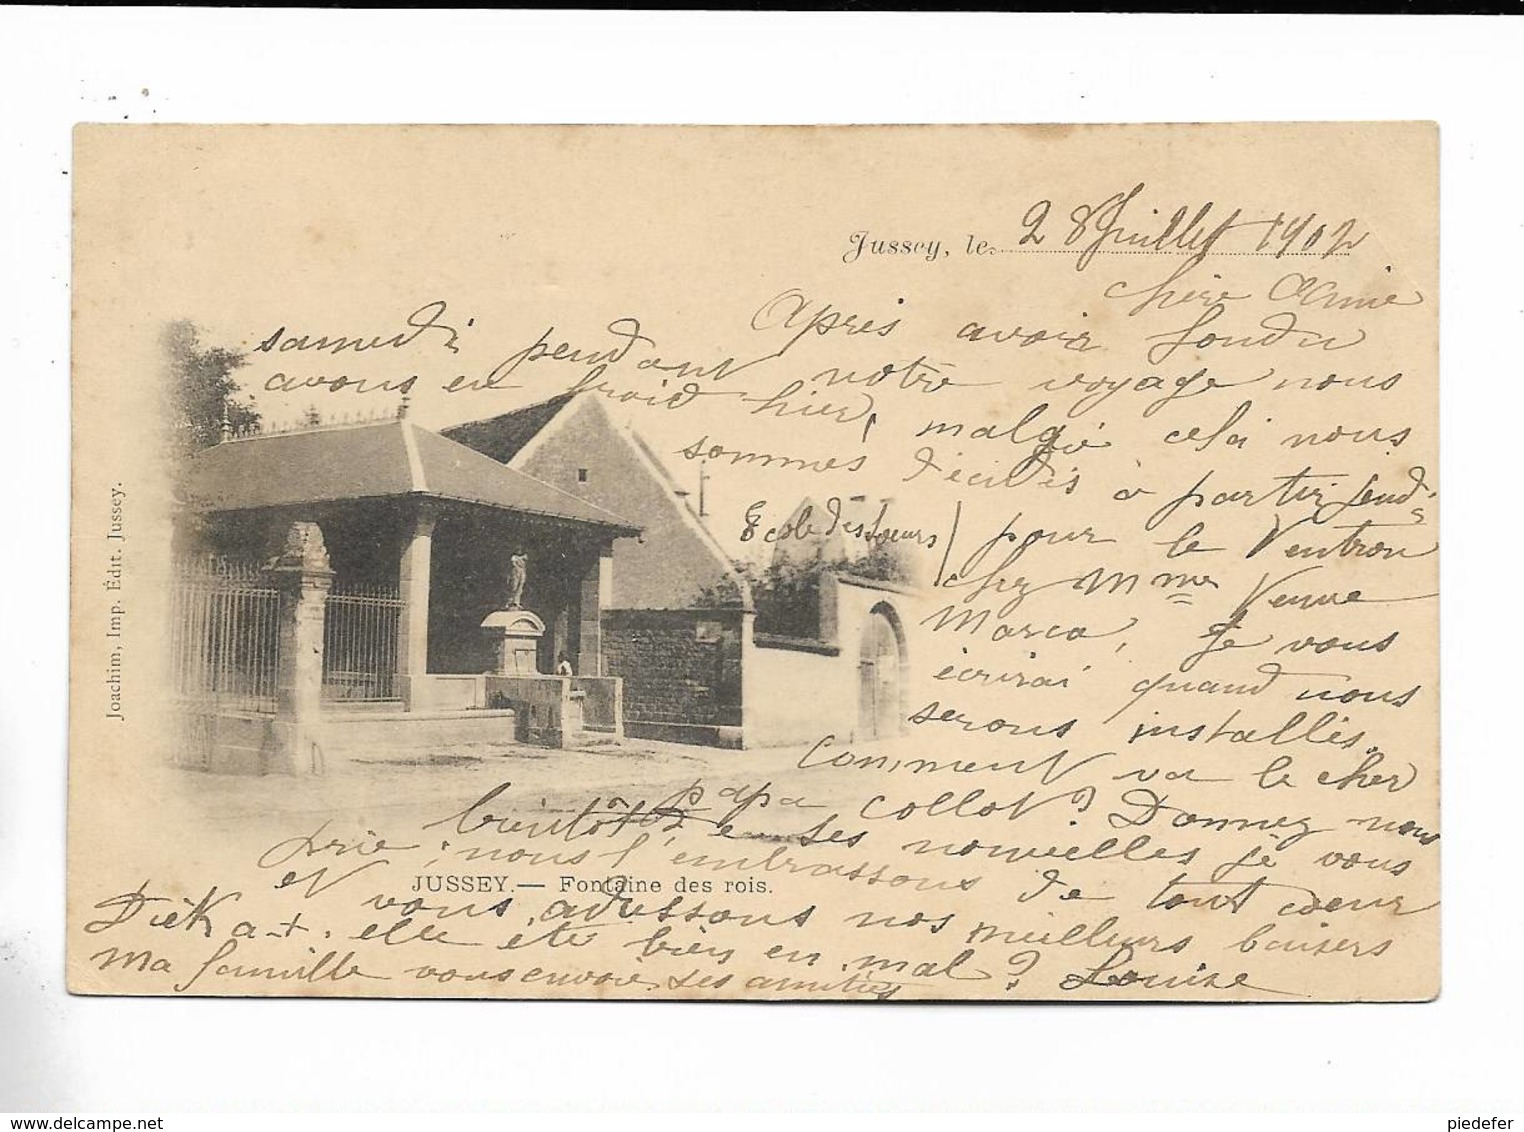 Jussey, le 28 Juillet 1902
chère Amie
Après avoir fondu
samedi pendant notre voyage nous
avons eu froid hier, malgré cela nous
sommes décidés à partir jeudi
pour le Ventron
chez Mme Veuve
Marco, Je vous
écrirai quand nous
serons installés.
Comment va le cher
papa Collot? Donnez nous
bientôt de ses nouvelles je vous
prie; nous l'embrassons de tout cœur
et vous adressons nos meilleurs baisers
Diék a-t-elle été bien en mal? Louise
ma famille vous envoie ses amitiés
Ecole des Soeurs
JUSSEY. — Fontaine des rois.
Joachim, Imp. Édit. Jussey.
delcampe.net
piedefer